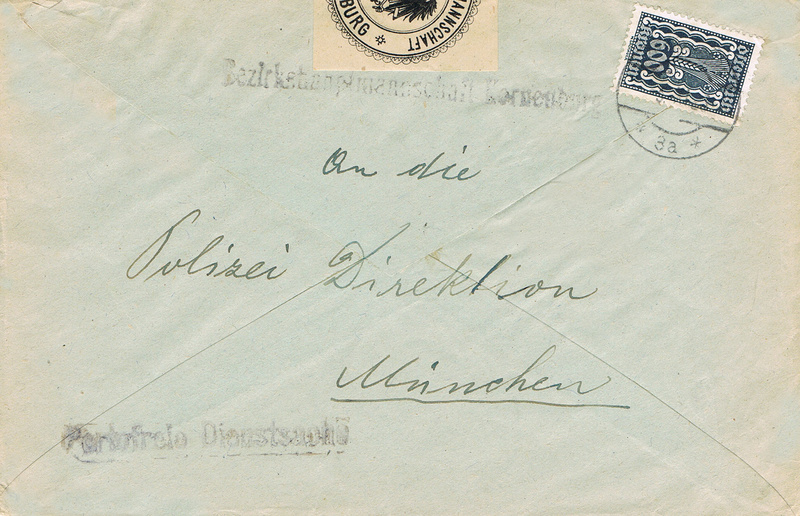 BURG * MANNSCHAFT
600
Bezirkshauptmannschaft Korneuburg
* 3a *
An die
Polizei Direktion
München
Portofreie Dienstsache